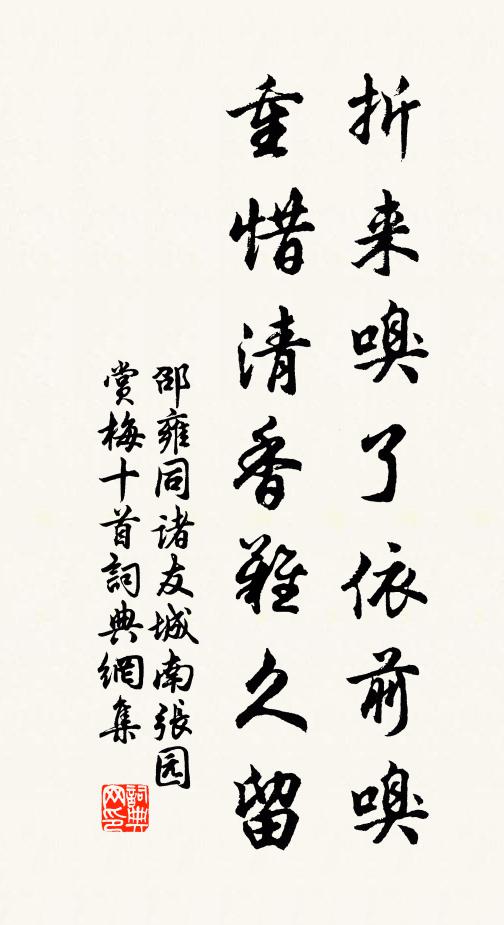 折来嗅了依前嗅
重惜清香難久留
邵雍同诸友城南張园
賞梅十首詞典網集
詞典
网印